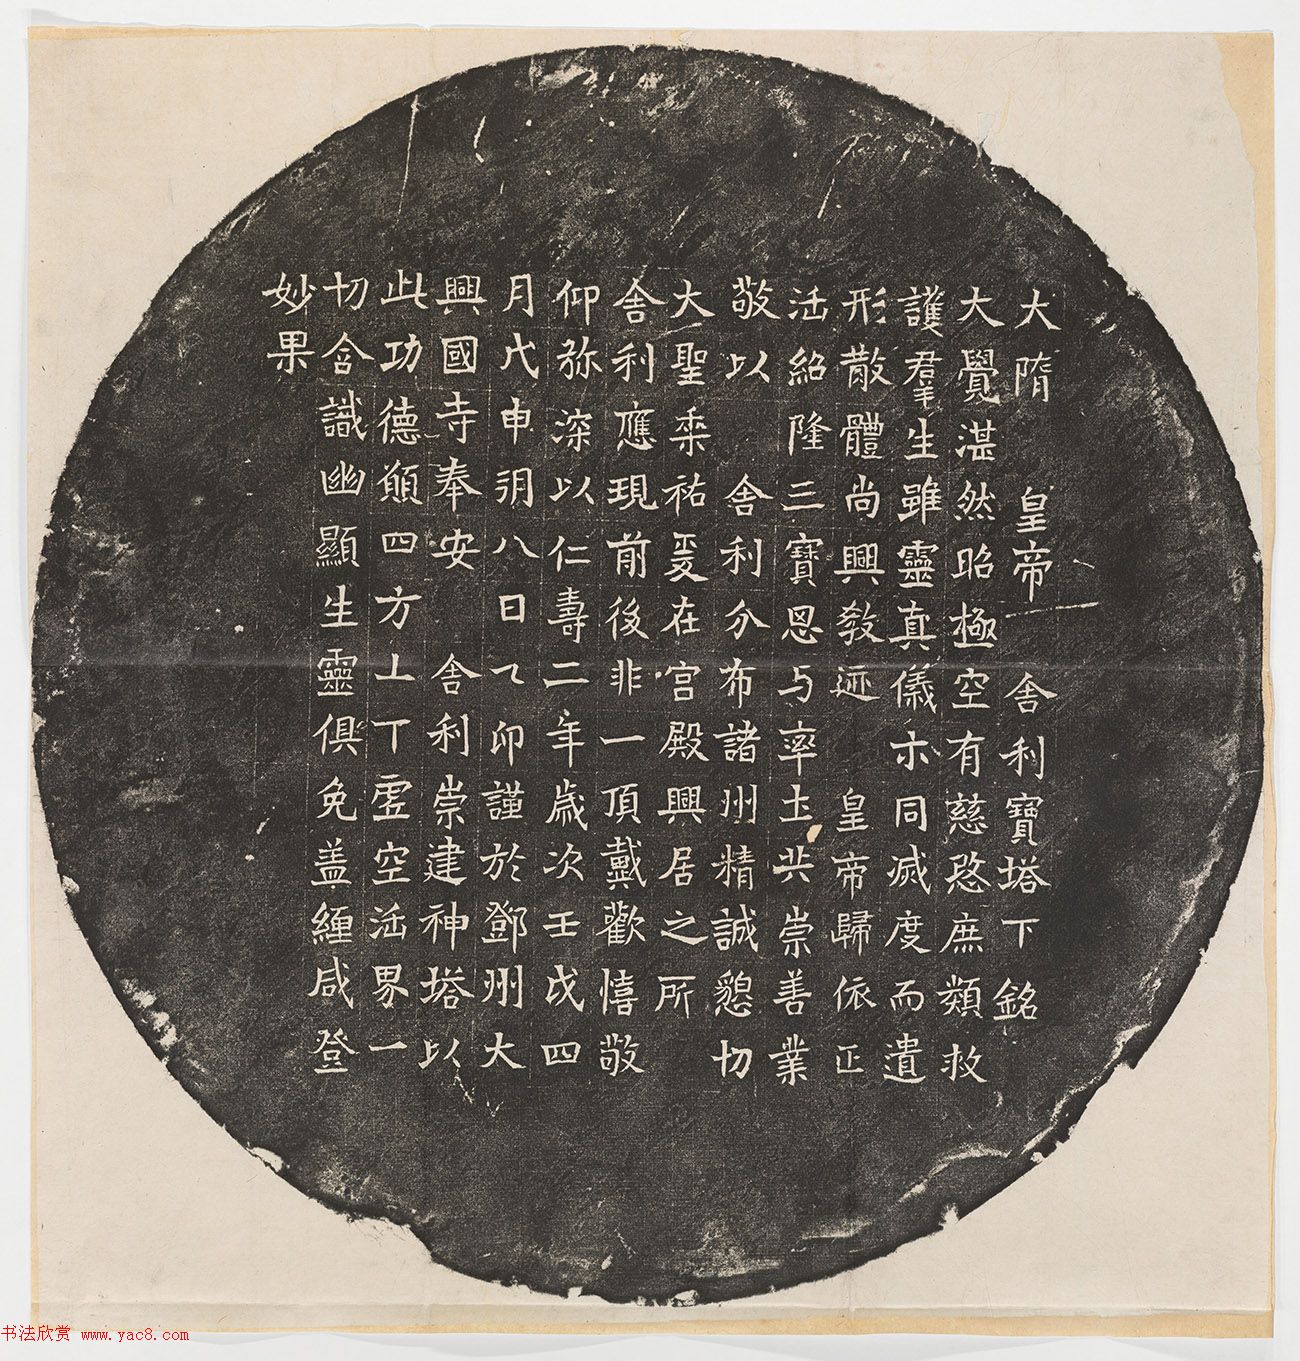 大隋 皇帝 舍利寶塔下銘
大覺湛然昭極空有慈愍庶類救
護羣生雖靈真儀示同滅度而遺
形散體尚興教迹 皇帝歸依正
法紹隆三寶思与率土共崇善業
敬以 舍利分布諸州精誠懇切
大聖垂祐爰在宫殿興居之所
舍利應現前後非一頂戴歡憘敬
仰弥深以仁壽二年歲次壬戌四
月戊申朔八日乙卯謹於鄧州大
興國寺奉安 舍利崇建神塔以
此功德願四方上下虛空法界一
切含識幽顯生靈俱免盖纏咸登
妙果
书法欣赏 www.yac8.com